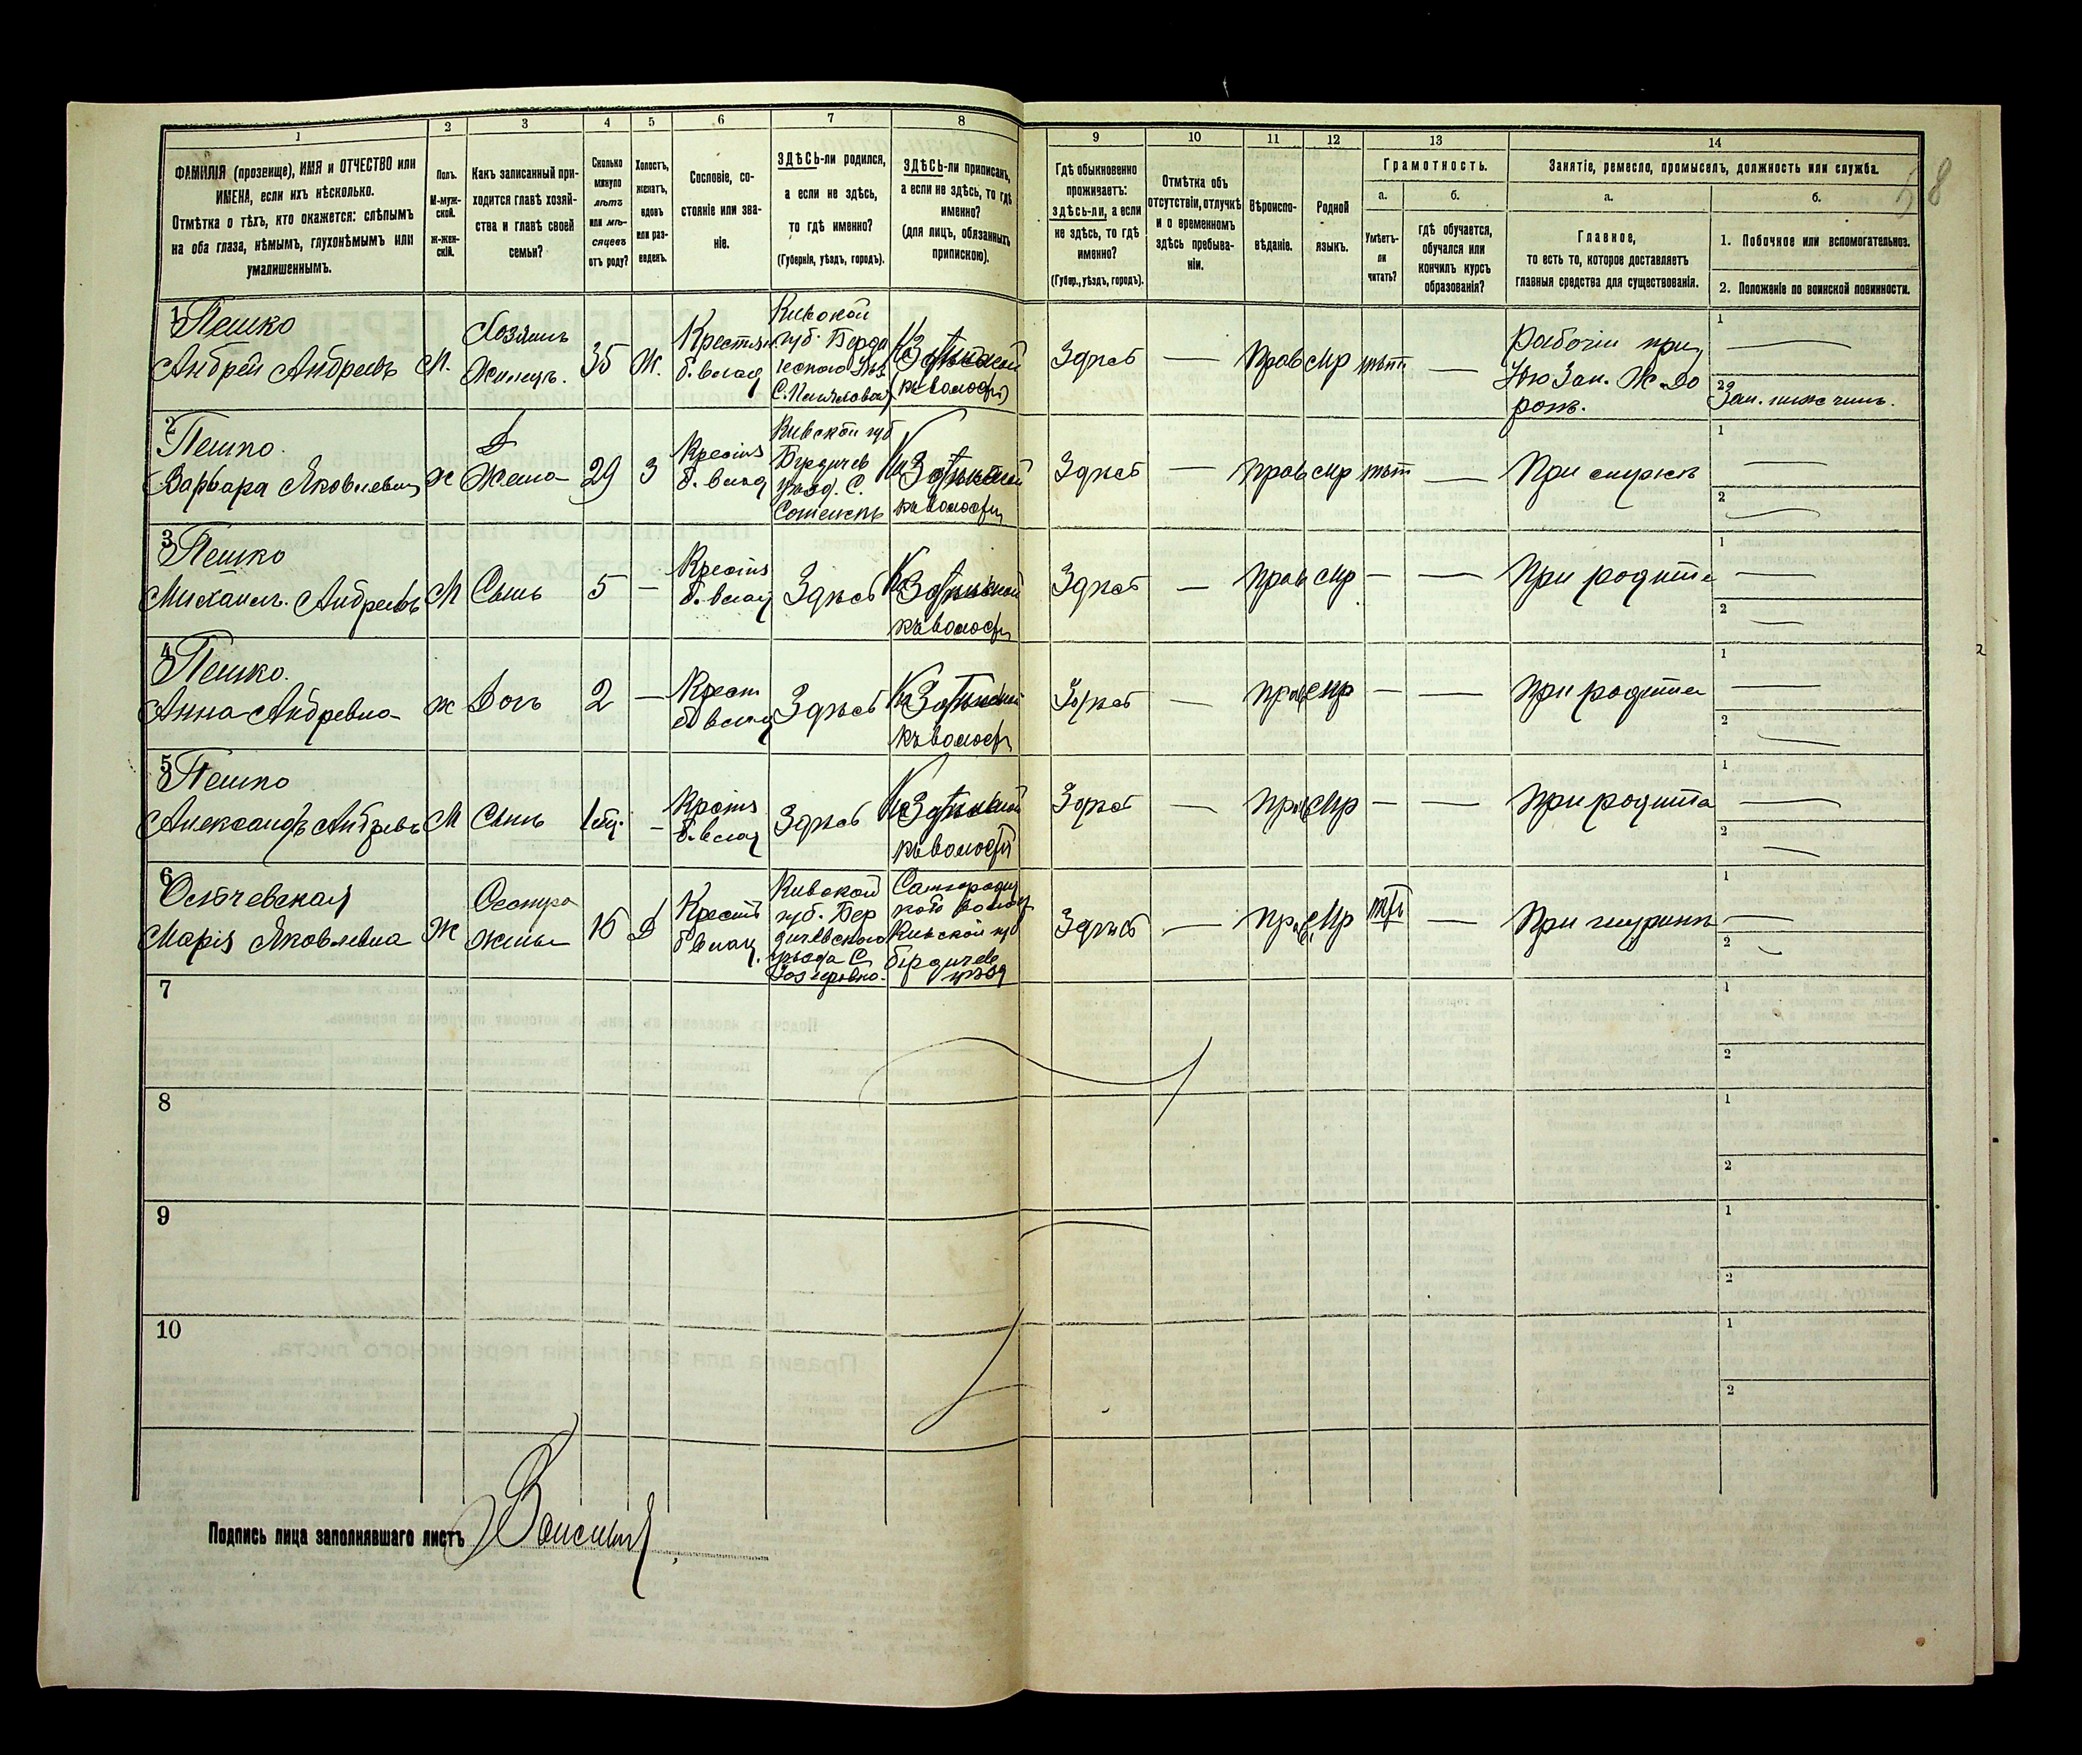 1 2 3 4 5 6 7 8 9 10 11 12 13 14
ФАМИЛІЯ (прозвище), ИМЯ и ОТЧЕСТВО или
ИМЕНА, если ихъ нѣсколько.
Отмѣтка о тѣхъ, кто окажется: слѣпымъ
на оба глаза, нѣмымъ, глухонѣмымъ или
умалишеннымъ.
Полъ.
М-муж-
ской.
Ж-жен-
скій.
Какъ записанный при-
ходится главѣ хозяй-
ства и главѣ своей
семьи?
Сколько
минуло
лѣтъ
или мѣ-
сяцевъ
отъ роду?
Холостъ,
женатъ,
вдовъ
или раз-
веденъ.
Сословіе, со-
стояніе или зва-
ніе.
ЗДѢСЬ-ли родился,
а если не здѣсь,
то гдѣ именно?
(Губернія, уѣздъ, городъ).
ЗДѢСЬ-ли приписанъ,
а если не здѣсь, то гдѣ
именно?
(для лицъ, обязанныхъ
припискою).
Гдѣ обыкновенно
проживаетъ:
здѣсь-ли, а если
не здѣсь, то гдѣ
именно?
(Губер., уѣздъ, городъ).
Отмѣтка объ
отсутствіи, отлучкѣ
и о временномъ
здѣсь пребыва-
ніи.
Вѣроиспо-
вѣданіе.
Родной
языкъ.
Грамотность.
а.
Умѣетъ-
ли
читать?
б.
гдѣ обучается,
обучался или
кончилъ курсъ
образованія?
Занятіе, ремесло, промыселъ, должность или служба.
а.
Главное,
то есть то, которое доставляетъ
главныя средства для существованія.
б.
1. Побочное или вспомогательное.
2. Положеніе по воинской повинности.
58
1
Пешко
Андрей Андреевъ
М.
Хозяинъ
Жилецъ.
35
Ж.
Крестья
б. влад
Кивской
губ. Берди
Здѣсь
—
Прав
мр
нѣтъ
—
Рабочій при
Ю Зап. Ж До
рогѣ.
1
2
Зап. нижс чинъ.
2
Пешко.
Варвара Яковлевна
Ж
Жена
29
З
Крестья
б. влад
Кивской губ
Бердичев
уѣзд. С.
волости
Здѣсь
—
Прав
мр
нѣт
—
При мужѣ
1
2
3
Пешко
Михаилъ. Андреевъ
М
Сынъ
5
—
Крестья
б. влад
Здѣсь
волости
Здѣсь
—
Прав
мр
—
—
При родите
1
2
4
Пешко.
Анна Андревна
ж
Дочь
2
—
Крест
б влад
Здѣсь
волости
Здѣсь
—
Прав
мр
—
—
При родите
1
2
5
Пешко
Александръ Андревъ
М
Сынъ
—
Крестья
б. влад
Здѣсь
волости
Здѣсь
—
Прав
мр
—
—
При родите
1
2
6
Марія Яковлевна
Ж
Сестра
жены
16
Д
Крестья
б влад.
Кивской
губ. Бер
дичевскаго
уѣзда С
Кивской губ
бердичев
уѣзд
Здѣсь
—
Прав.
Мр
—
1
2
7
1
2
8
1
2
9
1
2
10
1
2
Подпись лица заполнявшаго листъ